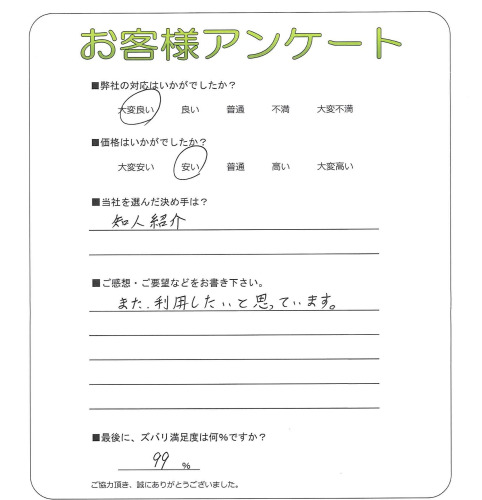 お客様アンケート
■弊社の対応はいかがでしたか？
大変良い 良い 普通 不満 大変不満
■価格はいかがでしたか？
大変安い 安い 普通 高い 大変高い
■当社を選んだ決め手は？
知人紹介
■ご感想・ご要望などをお書き下さい。
また、利用したいと思っています。
■最後に、ズバリ満足度は何%ですか？
99 %
ご協力頂き、誠にありがとうございました。